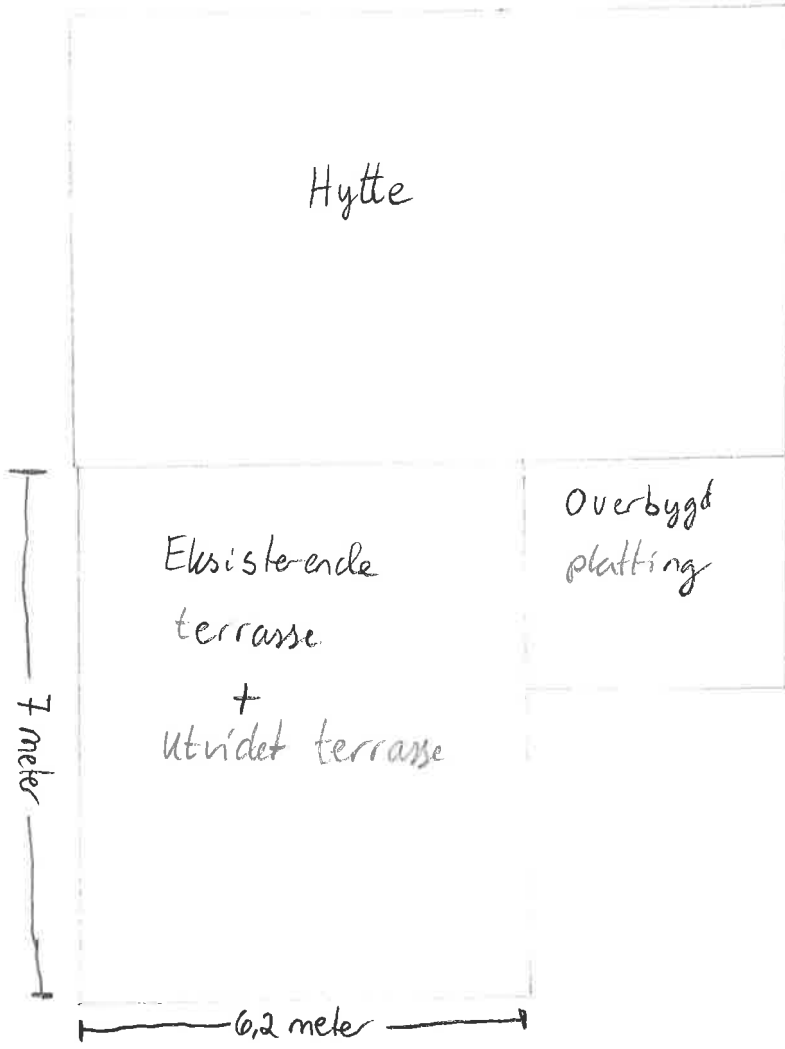 Hytte
Overbygd
platting
Eksisterende
terrasse
+
Utvidet terrasse
7 meter
6,2 meter